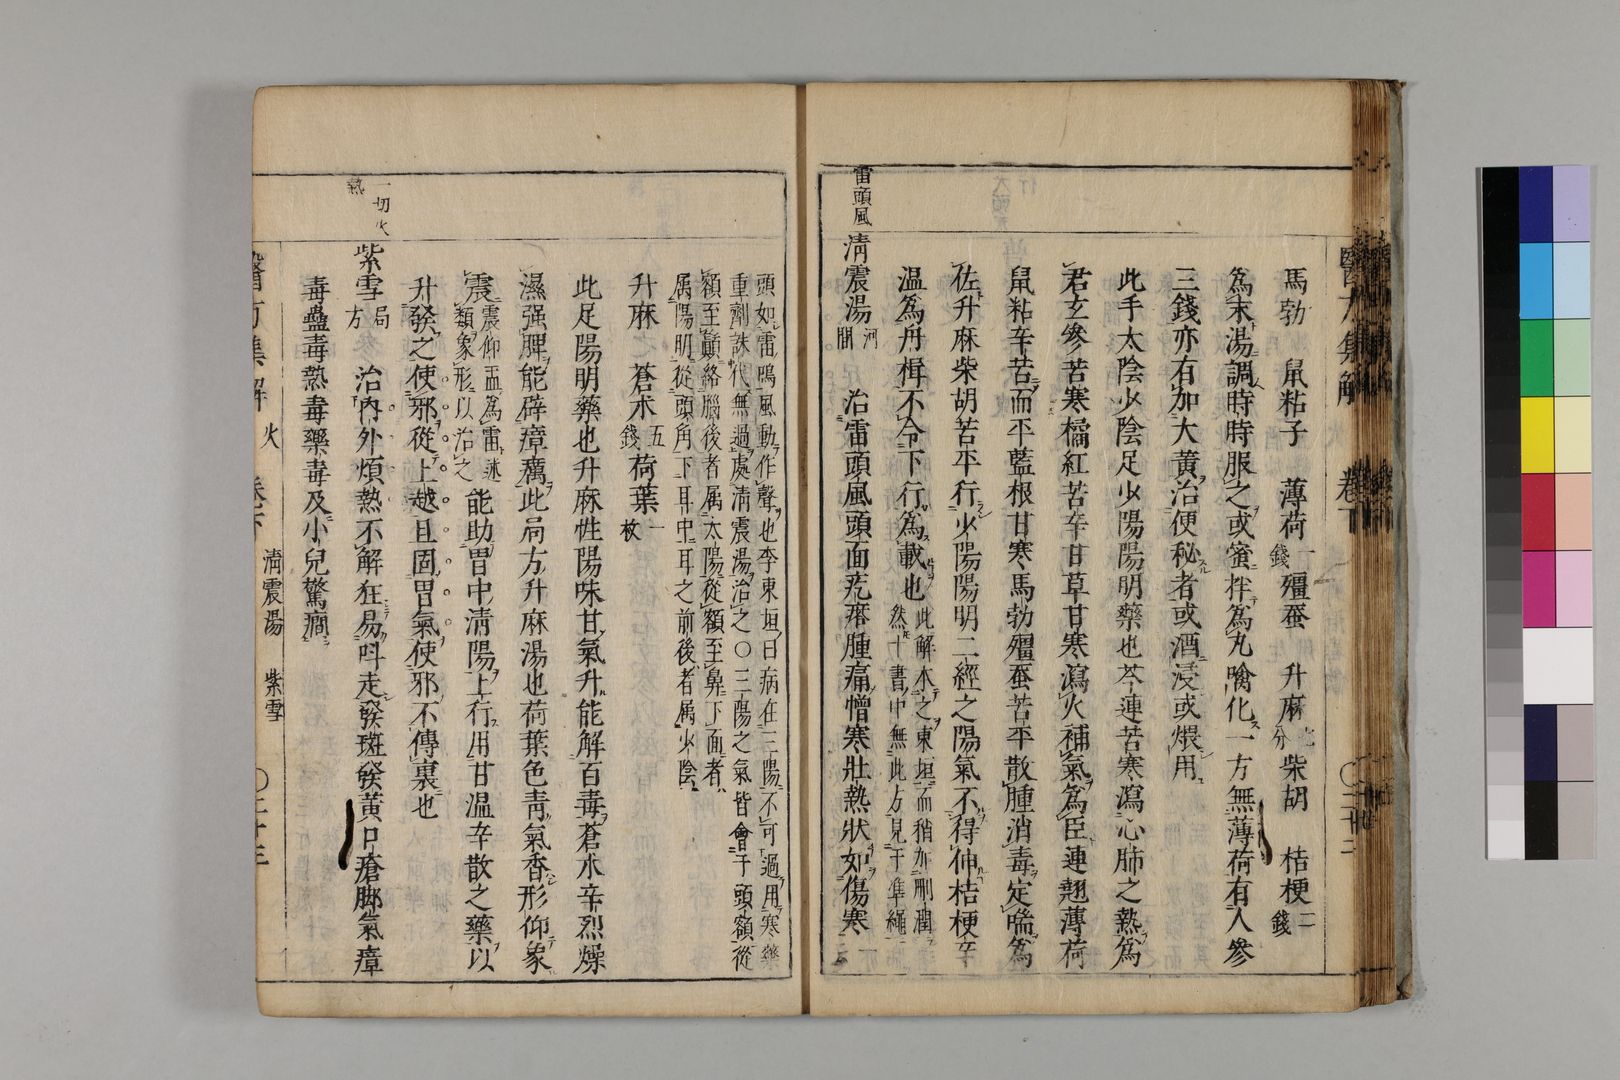 醫方集解 卷下 〇二十二
馬勃 鼠粘子 薄荷一錢 殭蚕 升麻七分 柴胡 桔梗二錢
爲末湯調時時服之或蜜拌爲丸噙化一方無薄荷有人參
三錢亦有加大黃治便秘者或酒浸或煨用
此手太陰少陰足少陽陽明藥也芩連苦寒瀉心肺之熱爲
君玄參苦寒橘紅苦辛甘草甘寒瀉火補氣爲臣連翹薄荷
鼠粘辛苦而平藍根甘寒馬勃殭蚕苦平散腫消毒定喘爲
佐升麻柴胡苦平行少陽陽明二經之陽氣不得伸桔梗辛
溫爲舟楫不令下行爲載也此解本之東垣而稍加删潤
然十書中無此方見于準繩
雷頭風
淸震湯河間 治雷頭風頭面疙瘩腫痛憎寒壯熱狀如傷寒
頭如雷鳴風動作聲也李東垣曰病在三陽不可過用寒藥
重劑誅伐無過處淸震湯治之〇三陽之氣皆會于頭額從
額至巔絡腦後者属太陽從額至鼻下面者
属陽明從頭角下耳中耳之前後者属少陰
升麻 蒼朮五錢 荷葉一枚
此足陽明藥也升麻性陽味甘氣升能解百毒蒼朮辛烈燥
濕强脾能辟瘴癘此局方升麻湯也荷葉色靑氣香形仰象
震震仰盂爲雷述
類象形以治之能助胃中淸陽上行用甘溫辛散之藥以
升發之使邪從上越且固胃氣使邪不傳裏也
一切火
熱
紫雪局方 治內外煩熱不解狂易呌走發斑發黃口瘡脚氣瘴
毒蠱毒熱毒藥毒及小兒驚癇
醫方集解 火 卷下 淸震湯 紫雪 〇二十三